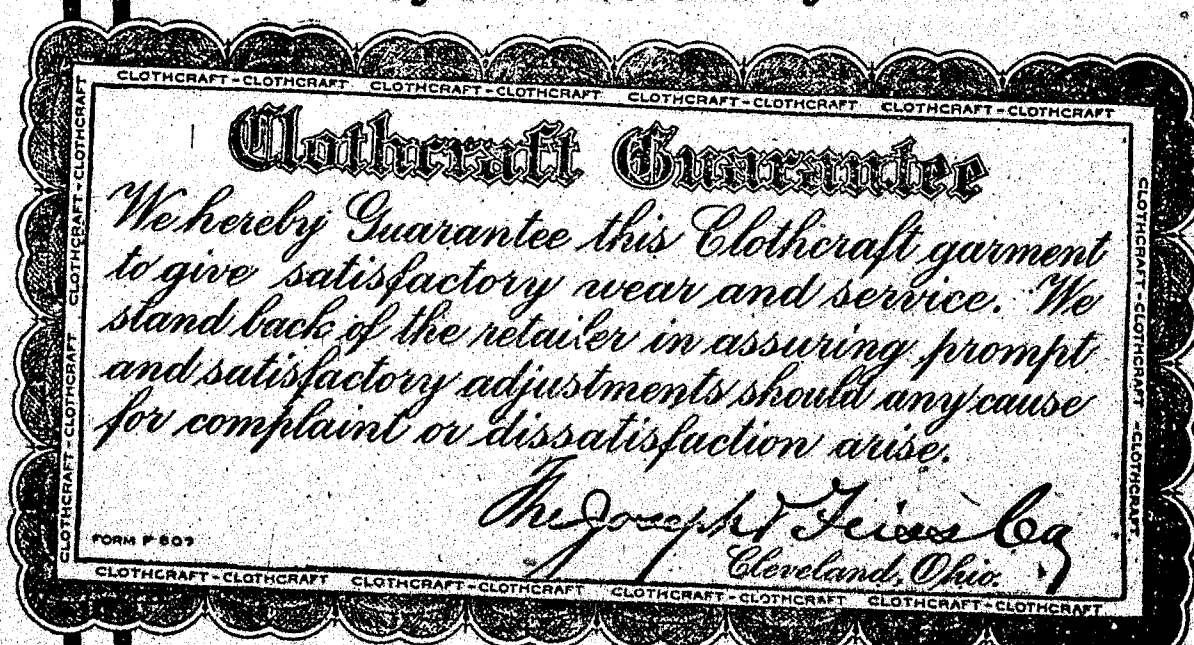 CLOTHCRAFT-CLOTHCRAFT CLOTHCRAFT-CLOTHCRAFT CLOTHCRAFT-CLOTHCRAFT CLOTHCRAFT-CLOTHCRAFT
CLOTHCRAFT-CLOTHCRAFT CLOTHCRAFT-CLOTHCRAFT
Clothcraft Guarantee
We hereby Guarantee this Clothcraft garment
to give satisfactory wear and service. We
stand back of the retailer in assuring prompt
and satisfactory adjustments should any cause
for complaint or dissatisfaction arise.
The Joseph & Feiss Co
Cleveland, Ohio.
FORM F 609
CLOTHCRAFT-CLOTHCRAFT-CLOTHCRAFT
CLOTHCRAFT-CLOTHCRAFT CLOTHCRAFT-CLOTHCRAFT CLOTHCRAFT-CLOTHCRAFT CLOTHCRAFT-CLOTHCRAFT